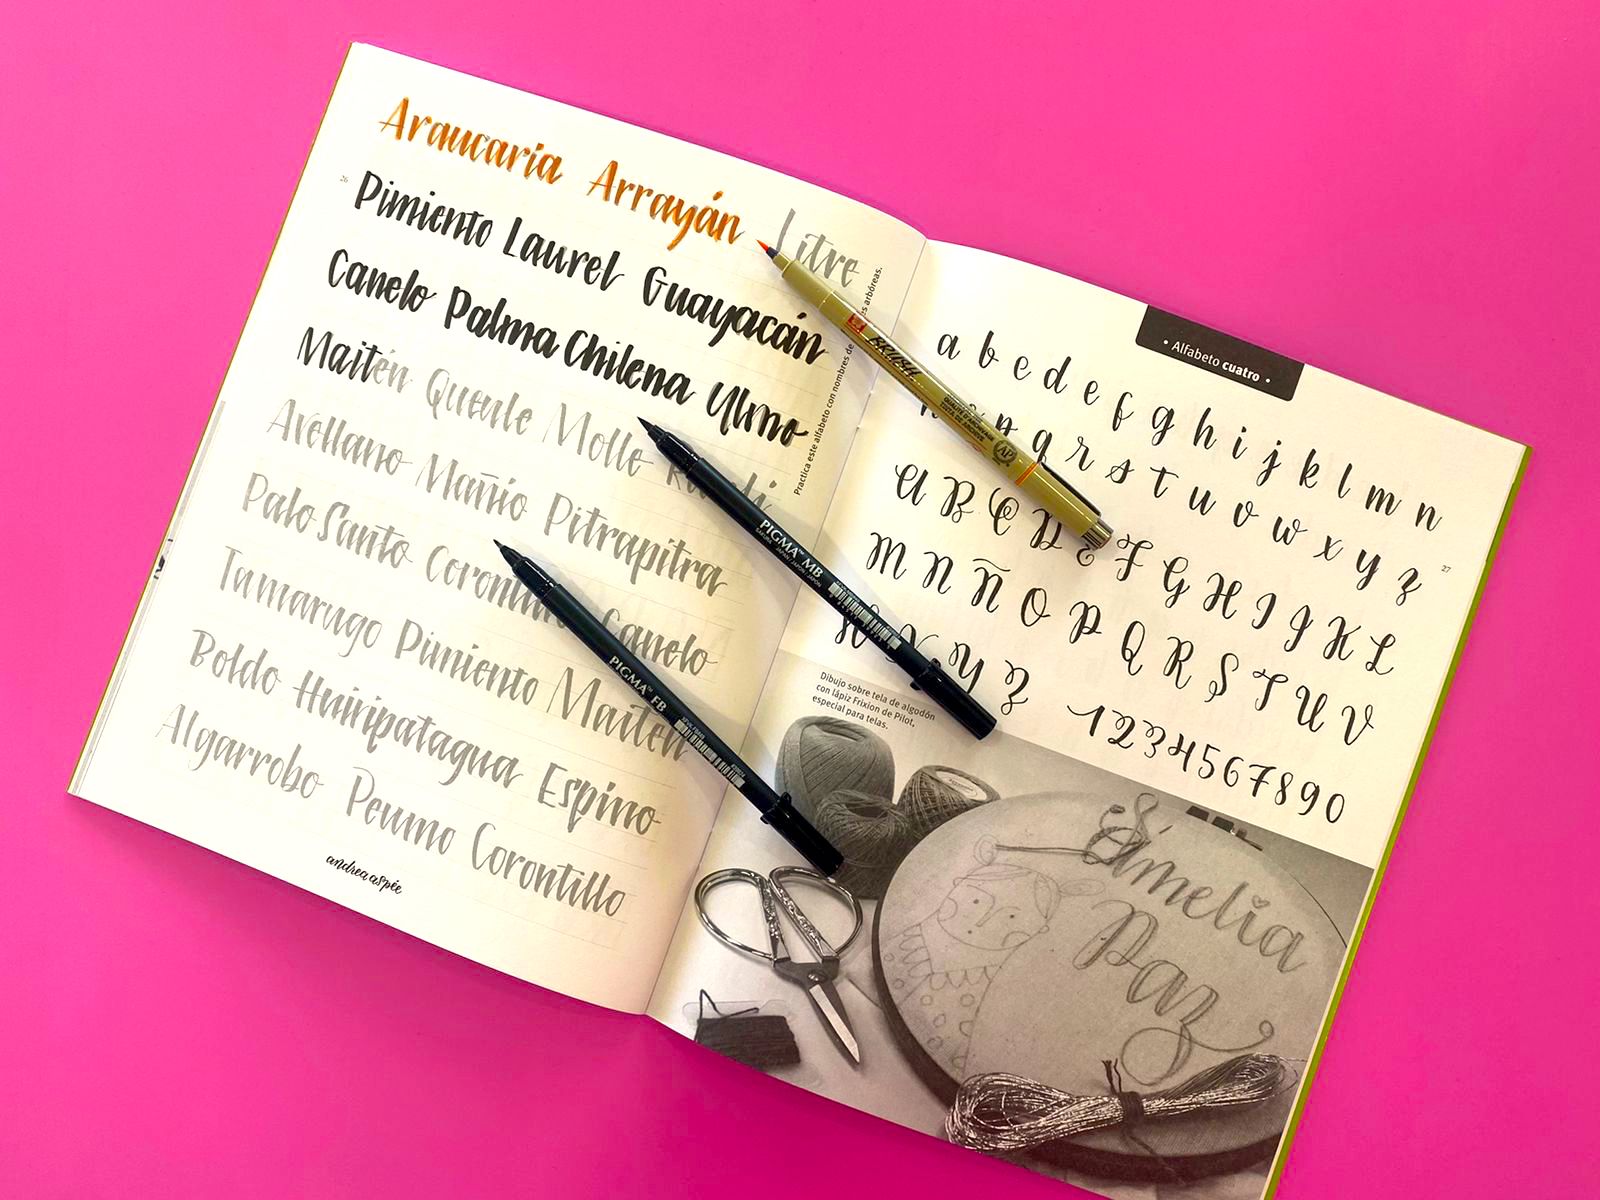 Araucaria Arrayán Litre
26
Pimiento Laurel Guayacán
Canelo Palma Chilena Ulmo
Maitén Queule Molle
Avellano Mañio Pitrapitra
Palo Santo Canelo
Tamarugo Pimiento Maitén
Boldo Huiripatagua Espino
Algarrobo Peumo Corontillo
andrea aspée
Practica este alfabeto con nombres de es arbóreas.
BRUSH
QUALITÉ D'ARCHIVAGE
TINTA DE ARCHIVO
AP
PIGMA™ MB
SAKURA JAPAN / JAPON / JAPÓN
PIGMA™ FB
• Alfabeto cuatro •
a b c d e f g h i j k l m n
ñ q r s t u v w x y z
27
A B C D E F G H I J K L
M N Ñ O P Q R S T U V
W X Y Z 1234567890
Dibujo sobre tela de algodón
con lápiz Frixion de Pilot,
especial para telas.
Amelia
Paz